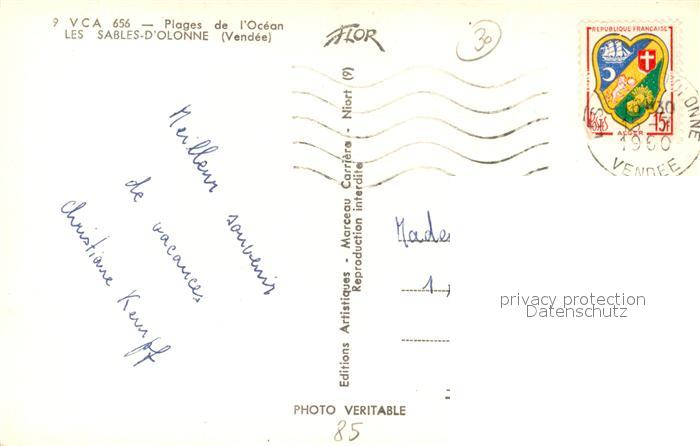 9 VCA 656 — Plages de l'Océan
LES SABLES-D'OLONNE (Vendée)
FLOR
30
REPUBLIQUE FRANÇAISE
ALGER
15F
OLONNE
1960
VENDEE
Meilleur souvenir
de vacances
Christiane Kempff
Editions Artistiques - Marceau Carrière - Niort (9)
Reproduction interdite
Made
1,
privacy protection
Datenschutz
PHOTO VERITABLE
85